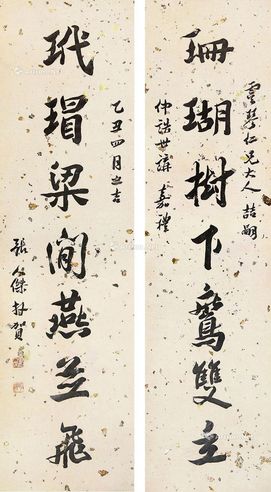 珊瑚樹下鴛雙立
雲琴仁兄大人喆嗣
仲誥世講嘉禮
玳瑁梁間燕並飛
乙丑四月之吉
張人傑拜賀